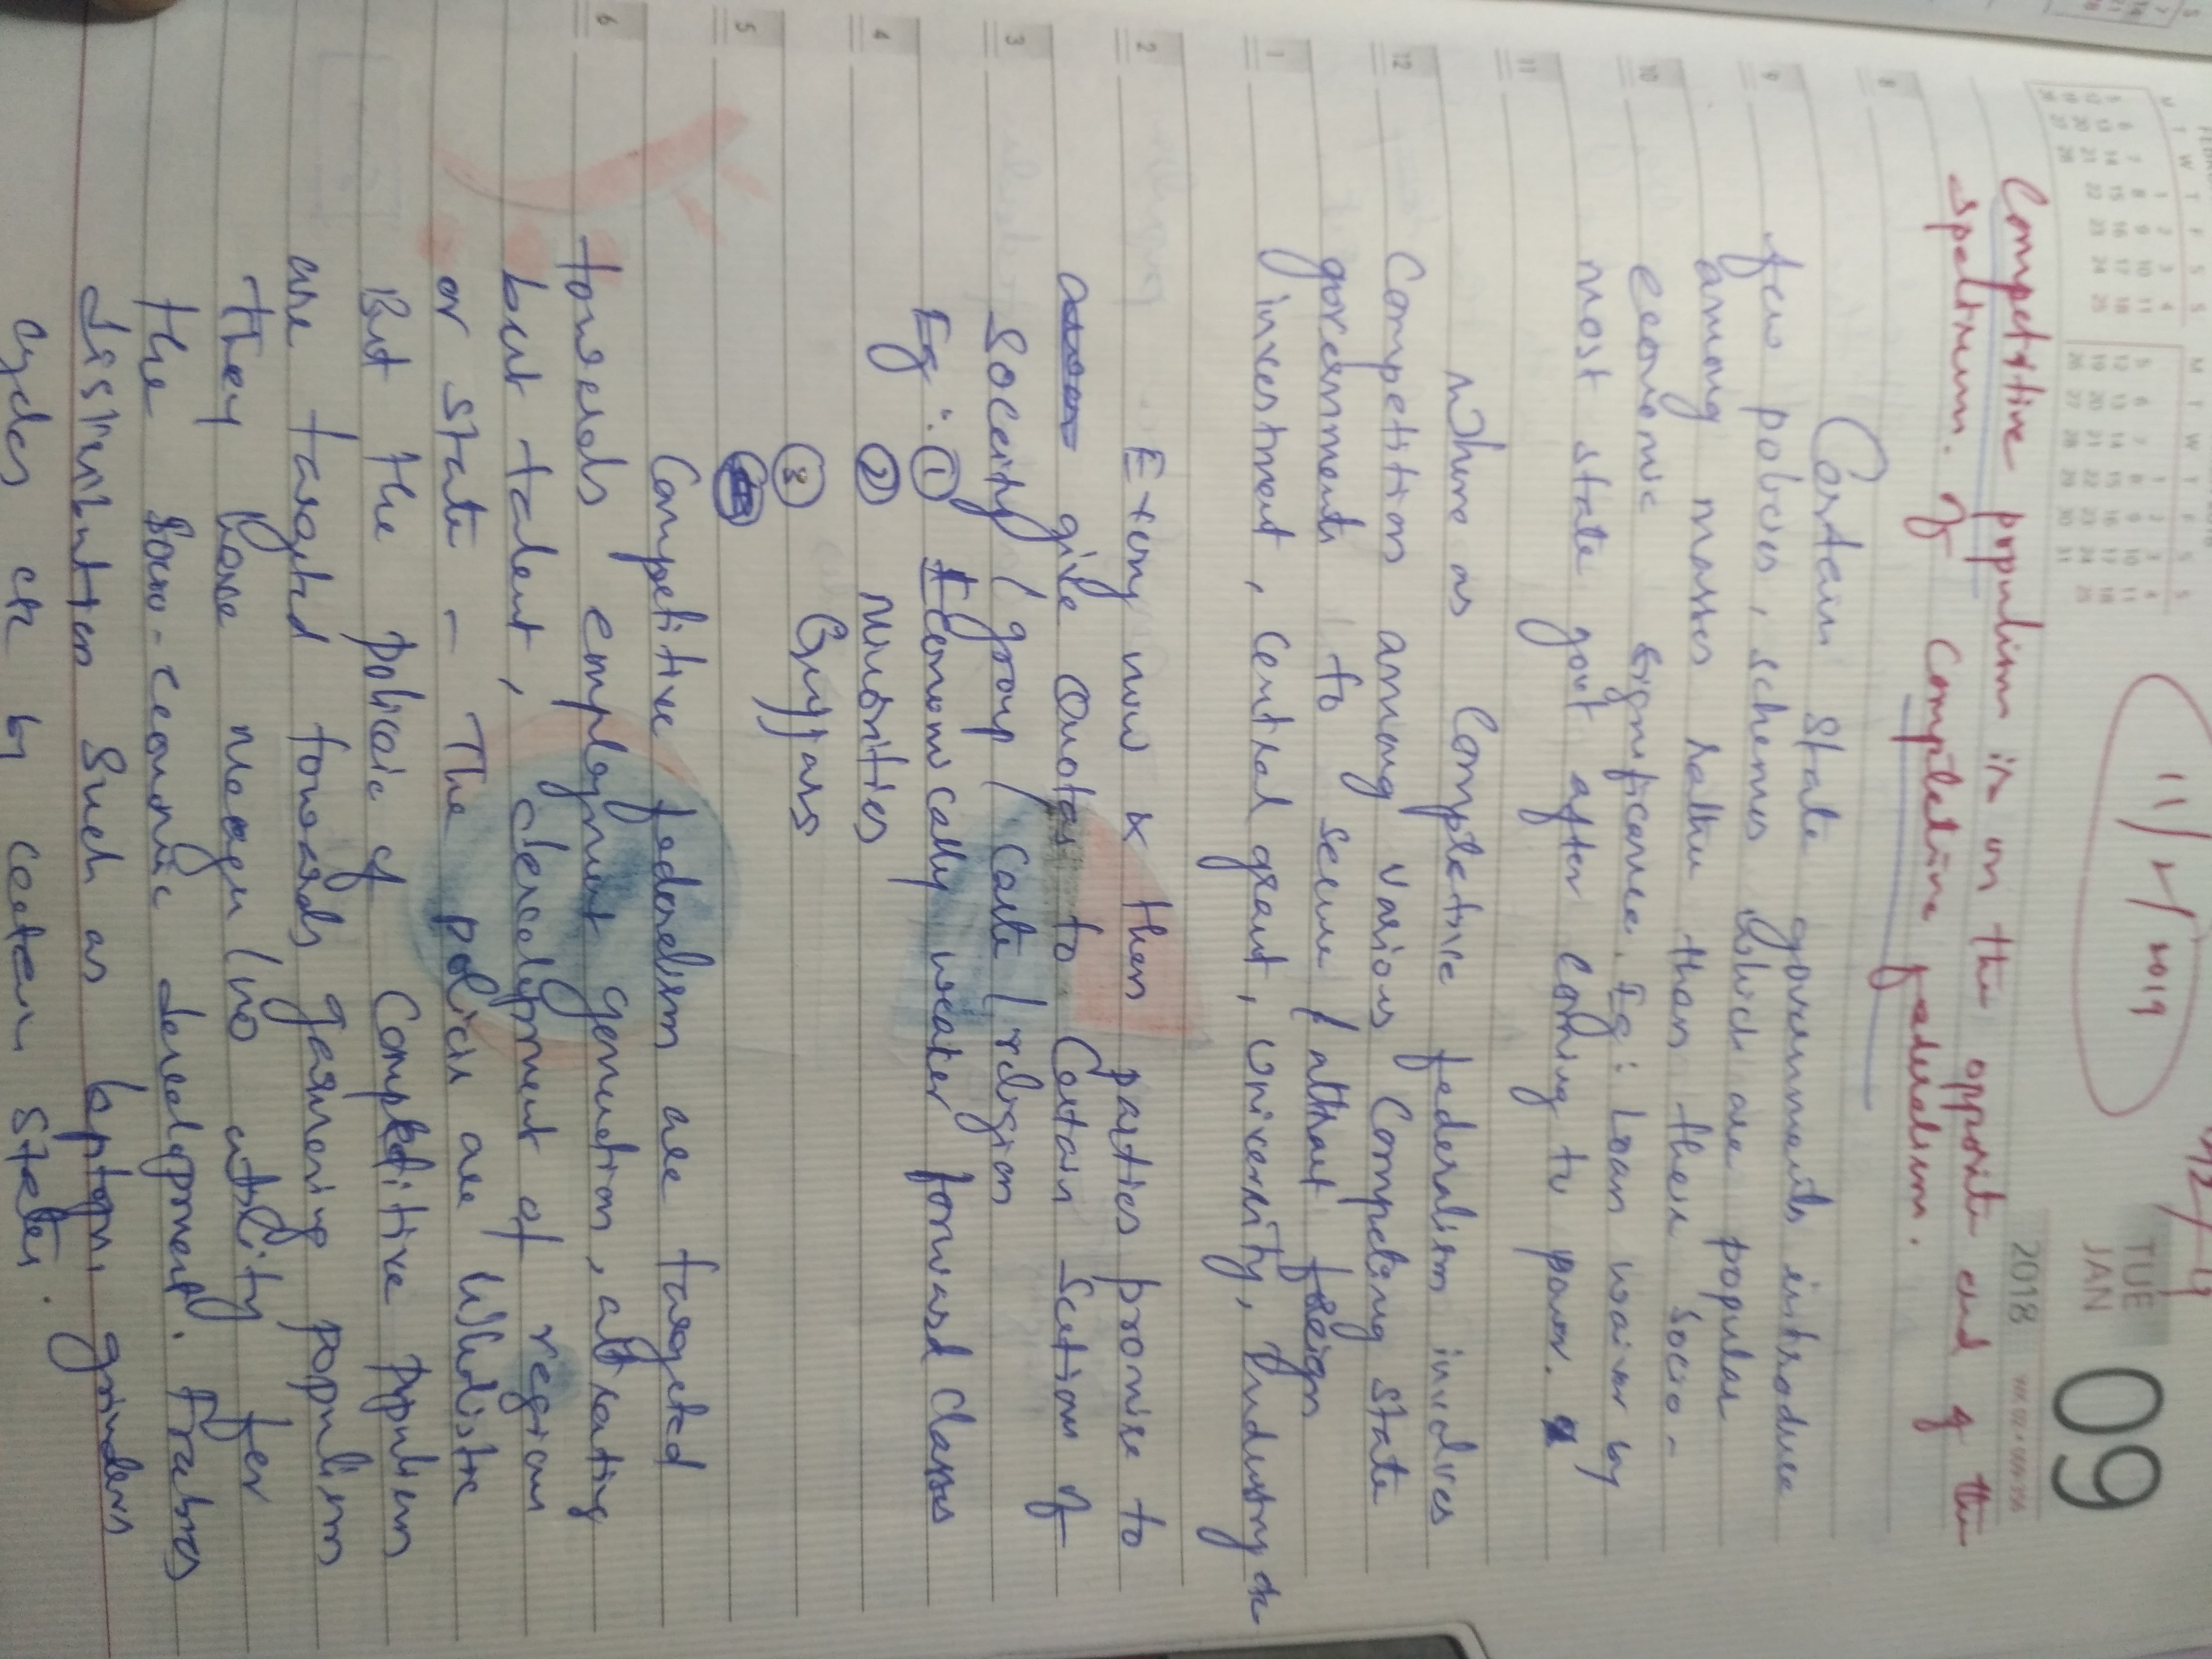 11/2/2019
TUE
JAN
09
2018
Competitive populism is on the opposite end of the
spectrum. of Competitive federalism.
8
Certain state governments introduce
9
few policies, schemes which are popular
among masses rather than their socio-
10
economic significance. Eg: Loan waiver by
most state govt after coming to power.
11
Where as Competitive federalism involves
12
Competition among various Competing state
governments to secure / attract foreign
1
investment, central grant, university, industry etc
2
Every now & then parties promise to
give Quotas to Certain Section of
3
Soceity / group / Caste / religion
Eg: ① Economically weaker forward classes
4
② Minorities
③ Gujjars
5
Competitive federalism are targeted
6
towards employment generation, attracting
best talent, development of region
or state - The policies are Wholistic
But the policie of Competitive populism
are targeted towards garnering populism
They have meagre / no utility for
the socio-economic development. Freebies
distribution such as laptops, grinders
cycles etc by certain states.